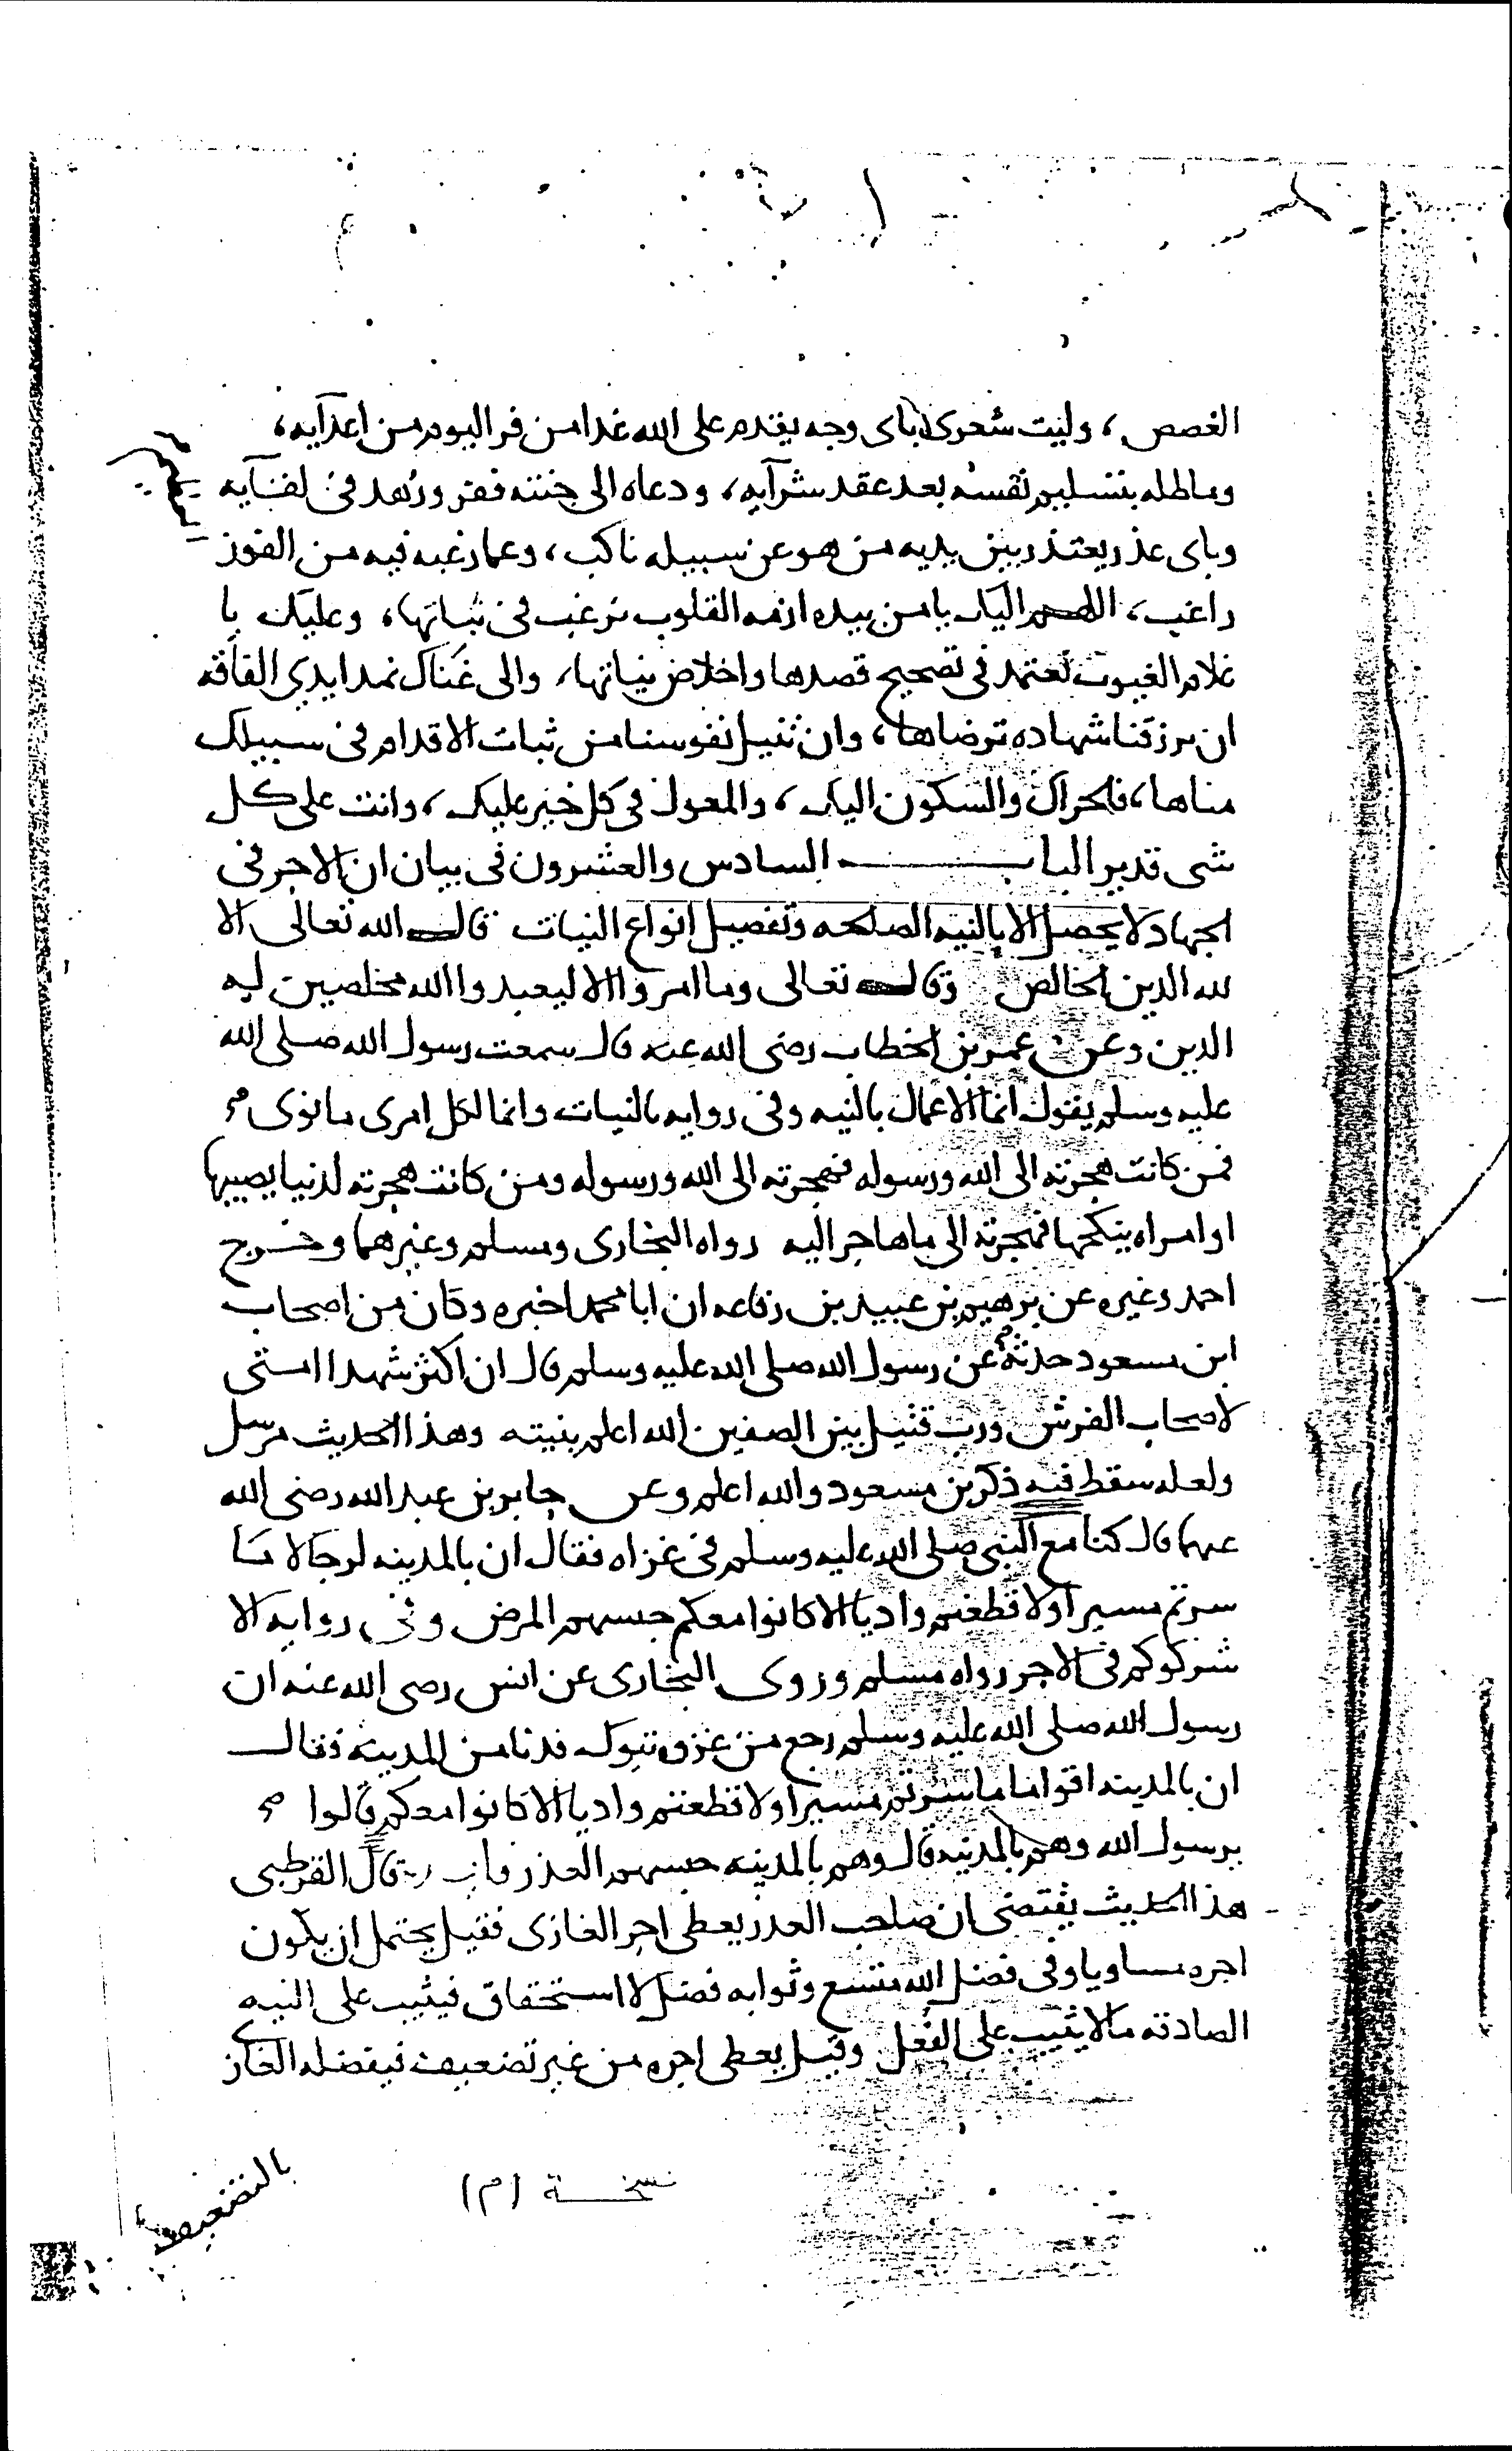 الغصص، وليت شعري باى وجه يقدم على الله غدا من فر اليوم من اعدآيه،
وماطله بتسليم نفسه بعد عقد شرآيه، ودعاه الى جنته ففر وزهد فى لقآيه
وباى عذر يعتذر بين يديه من هو عن سبيله ناكب، وعما رغبه فيه من الفوز
راغب، اللهم اليك يا من بيده ازمه القلوب نرغب فى ثباتها، وعليك يا
علام الغيوب نعتمد فى تصحيح قصدها واخلاص نياتها، والى غناك نمد ايدي الفاقه
ان ترزقنا شهاده ترضاها، وان تنيل نفوسنا من ثبات الاقدام فى سبيلك
مناها، فالحراك والسكون اليك، والمعول فى كل خير عليك، وانت على كل
شى قدير الباب السادس والعشرون فى بيان ان الاجر فى
الجهاد لا يحصل الا بالنيه الصالحه وتفصيل انواع النيات قال الله تعالى الا
لله الدين الخالص وقال تعالى وما امروا الا ليعبدوا الله مخلصين له
الدين وعن عمر بن الخطاب رضى الله عنه قال سمعت رسول الله صلى الله
عليه وسلم يقول انما الاعمال بالنيه وفى روايه بالنيات وانما لكل امرى ما نوى
فمن كانت هجرته الى الله ورسوله فهجرته الى الله ورسوله ومن كانت هجرته لدنيا يصيبها
او امراه ينكحها فهجرته الى ما هاجر اليه رواه البخارى ومسلم وغيرهما وخرج
احمد وغيره عن برهيم بن عبيد بن رفاعه ان ابا محمد اخبره وكان من اصحاب
ابن مسعود حدثه عن رسول الله صلى الله عليه وسلم قال ان اكثر شهدا امتى
لاصحاب الفرش ورب قتيل بين الصفين الله اعلم بنيته وهذا الحديث مرسل
ولعله سقط فيه ذكر بن مسعود والله اعلم وعن جابر بن عبد الله رضى الله
عنهما قال كنا مع النبى صلى الله عليه وسلم فى غزاه فقال ان بالمدينه لرجالا ما
سرتم مسيرا ولا قطعتم واديا الا كانوا معكم حبسهم المرض وفى روايه الا
شركوكم فى الاجر رواه مسلم وروى البخارى عن انس رضى الله عنه ان
رسول الله صلى الله عليه وسلم رجع من غزوة تبوك فدنا من المدينة فقال
ان بالمدينه اقواما ما سرتم مسيرا ولا قطعتم واديا الا كانوا معكم قالوا
يرسول الله وهم بالمدينه قال وهم بالمدينه حبسهم العذر قال القرطبى
هذا الحديث يقتضى ان صاحب العذر يعطى اجر الغازى فقيل يحتمل ان يكون
اجره مساويا وفى فضل الله متسع وثوابه فضل لا استحقاق فيثيب على النيه
الصادقه ما لا يثيب على الفعل وقيل يعطى اجره من غير تضعيف فيفضله الغازي
بالتضعيف
نسخة (م)